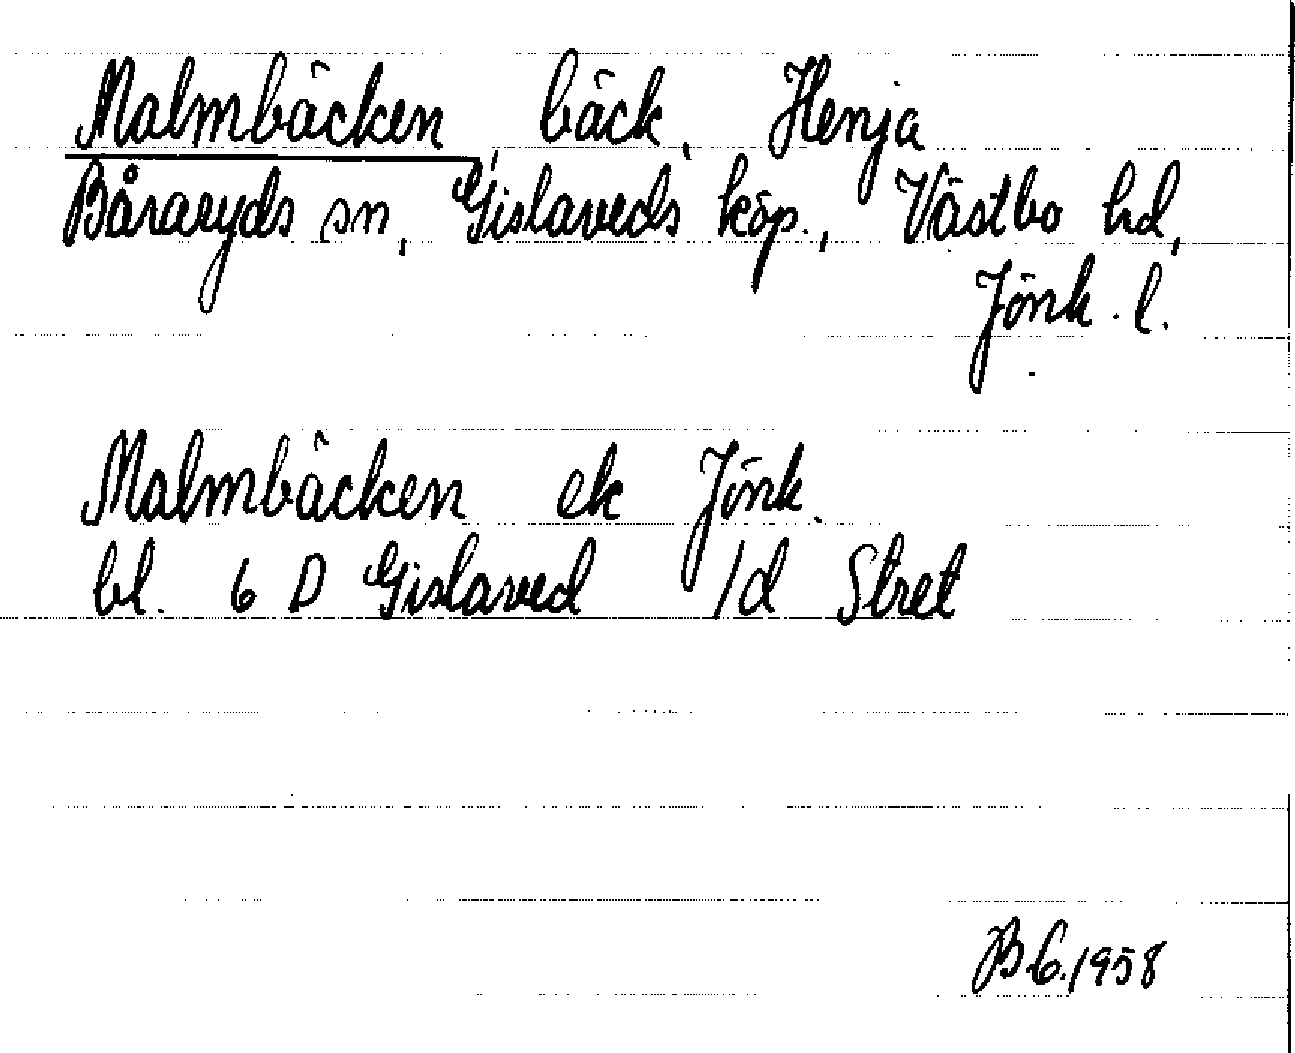 Malmbäcken, bäck, Henja
Båraryds sn, Gislaveds köp., Västbo hd,
Jönk. l.
Malmbäcken ek Jönk.
bl. 6 D Gislaved /d Stret
B.G.1958